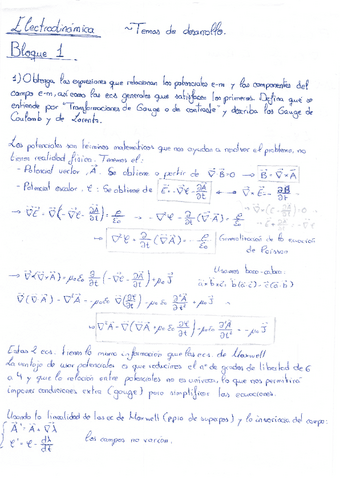 Electrodinámica ~Temas de desarrollo.
Bloque 1.
1) Obtenga las expresiones que relacionan los potenciales e-m y las componentes del
campo e-m, así como las ecs generales que satisfacen los primeros. Defina qué se
entiende por "Transformaciones de Gauge o de contraste" y describa los Gauge de
Coulomb y de Lorentz.
Los potenciales son términos matemáticos que nos ayudan a resolver el problema, no
tienen realidad física. Tenemos el:
- Potencial vector, A⃗. Se obtiene a partir de ∇⃗·B⃗=0 → B⃗=∇⃗×A⃗
- Potencial escalar, φ: Se obtiene de E⃗=-∇⃗φ-∂A⃗/∂t ← → ∇⃗×E⃗=-∂B⃗/∂t
→ ∇⃗E⃗=∇⃗(-∇⃗φ-∂A⃗/∂t)=ρ/ε₀ → -∇²φ-∂/∂t(∇⃗A⃗)=ρ/ε₀
→ ∇²φ+∂/∂t(∇⃗A⃗)=-ρ/ε₀ Generalización de la ecuación
de Poisson
Usamos baca-caba:
→ ∇⃗×(∇⃗×A⃗)=μ₀ε₀ ∂/∂t(-∇⃗φ-∂A⃗/∂t)+μ₀J⃗
∇⃗(∇⃗A⃗)-∇²A⃗=-μ₀ε₀∇⃗(∂φ/∂t)-μ₀ε₀ ∂²A⃗/∂t²+μ₀J⃗
→ ∇²A⃗-∇⃗(∇⃗A⃗+μ₀ε₀ ∂φ/∂t)-μ₀ε₀ ∂²A⃗/∂t²=-μ₀J⃗
Estas 2 ecs. tienen la misma información que las ecs de Maxwell
La ventaja de usar potenciales es que reducimos el nº de grados de libertad de 6
a 4 y que la relación entre potenciales no es unívoca, lo que nos permitirá
imponer condiciones extra (gauge) para simplificar las ecuaciones.
Usando la linealidad de las ec de Maxwell (ppio de superpos) y la invariancia del campo:
{ A⃗'=A⃗+∇⃗λ
φ'=φ-dλ/dt los campos no varían.